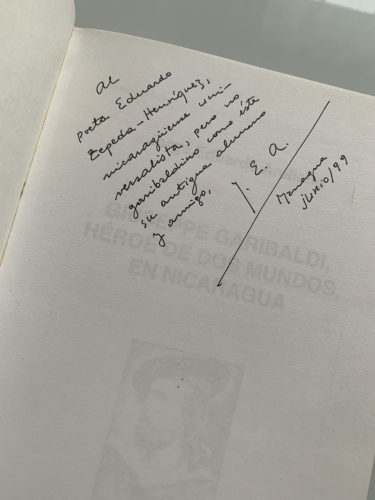 al
poeta Eduardo
Zepeda-Henríquez,
nicaragüense uni-
versalista, pero no
garibaldino como éste
su antiguo alumno
y amigo,
J. E. A.
Managua
junio/99
GIUSEPPE GARIBALDI,
HÉROE DE DOS MUNDOS,
EN NICARAGUA